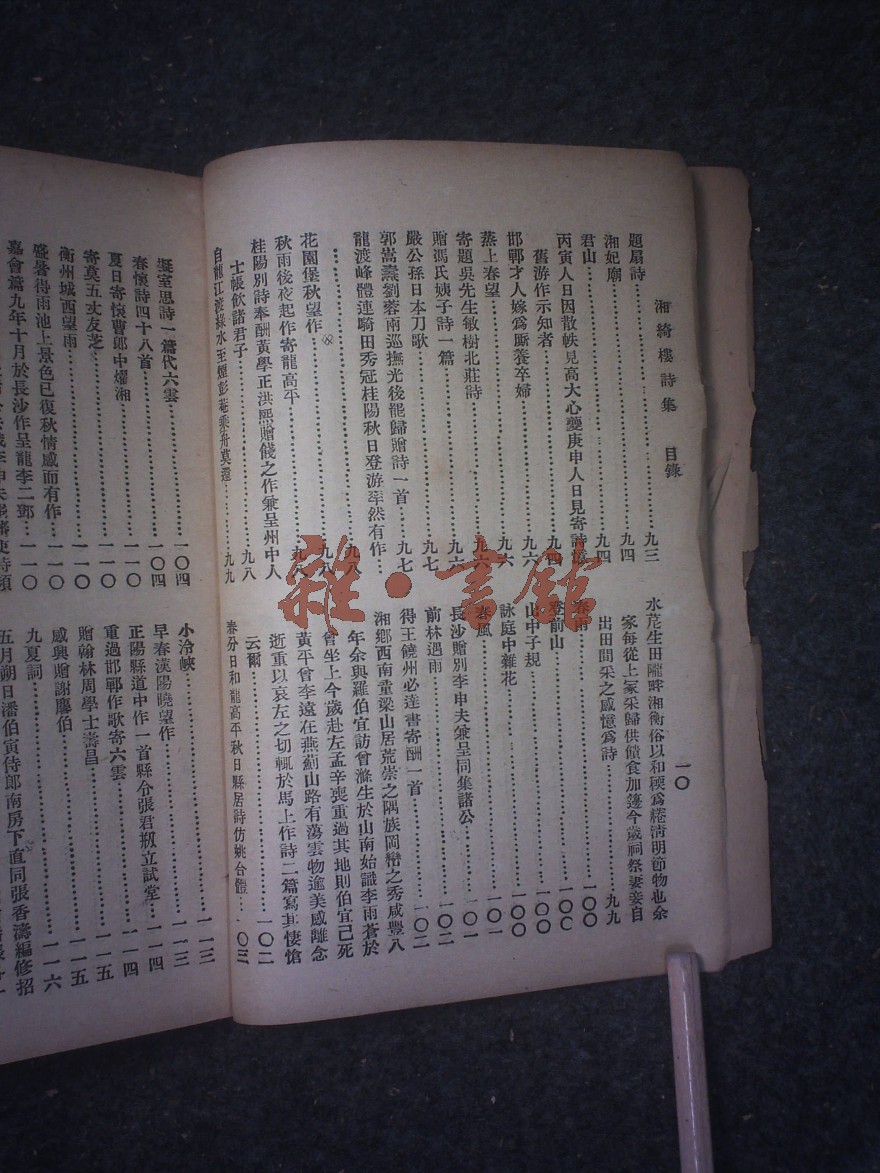 湘綺樓詩集　目錄
一〇
題扇詩……九三
湘妃廟……九四
君山……九四
丙寅人日因散帙見高大心夔庚申人日見寄詩感
舊游作示知者……九四
邯鄲才人嫁爲厮養卒婦……九六
蒸上春望……九六
寄題吳先生敏樹北莊詩……九六
贈馮氏姨子詩一篇……九六
嚴公孫日本刀歌……九七
郭嵩燾劉蓉兩巡撫先後罷歸贈詩一首……九七
龍渡峰體連騎田秀冠桂陽秋日登游翠然有作……九八
花園堡秋望作……九八
秋雨後夜起作寄龍高平……九八
桂陽別詩奉酬黃學正洪熙贈餞之作兼呈州中人
士帳飲諸君子……九八
自龍江渡綠水至煙彭菴乘舟莫還……九九
水茳生田隴畔湘衡俗以和稬爲餈清明節物也余
家每從上冢采歸供饋食加籩今歲祠祭妻妾自
出田間采之感憶爲詩……九九
春雨……一〇〇
登前山……一〇〇
山中子規……一〇〇
詠庭中雜花……一〇〇
春風……一〇一
長沙贈別李申夫兼呈同集諸公……一〇一
前林遇雨……一〇二
得王饒州必達書寄酬一首……一〇二
湘鄉西南童梁山居荒崇之隅族岡巒之秀咸豐八
年余與羅伯宜訪曾滌生於山南始識李雨蒼於
曾坐上今歲赴左孟辛喪重過其地則伯宜已死
黃平曾李遠在燕薊山路有蕩雲物逾美感離念
近重以哀左之切輒於馬上作詩二篇寫其悽愴
云爾……一〇二
春分日和龍高平秋日縣居詩仿姚合體……一〇三
凝室思詩一篇代六雲……一〇四
春懷詩四十八首……一〇四
夏日寄懷曹郎中燿湘……一一〇
寄莫五丈友芝……一一〇
衡州城西望雨……一一〇
盛暑得雨池上景色已復秋情感而有作……一一〇
嘉會篇九年十月於長沙作呈龍李二鄧……一一〇
小泠峽……一一三
早春漢陽曉望作……一一三
正陽縣道中作一首縣令張君搬立試堂……一一四
重過邯鄲作歌寄六雲……一一四
贈翰林周學士壽昌……一一五
感興贈謝麐伯……一一五
九夏詞……一一六
五月朔日潘伯寅侍郎南房下直同張香濤編修招
雜·書館